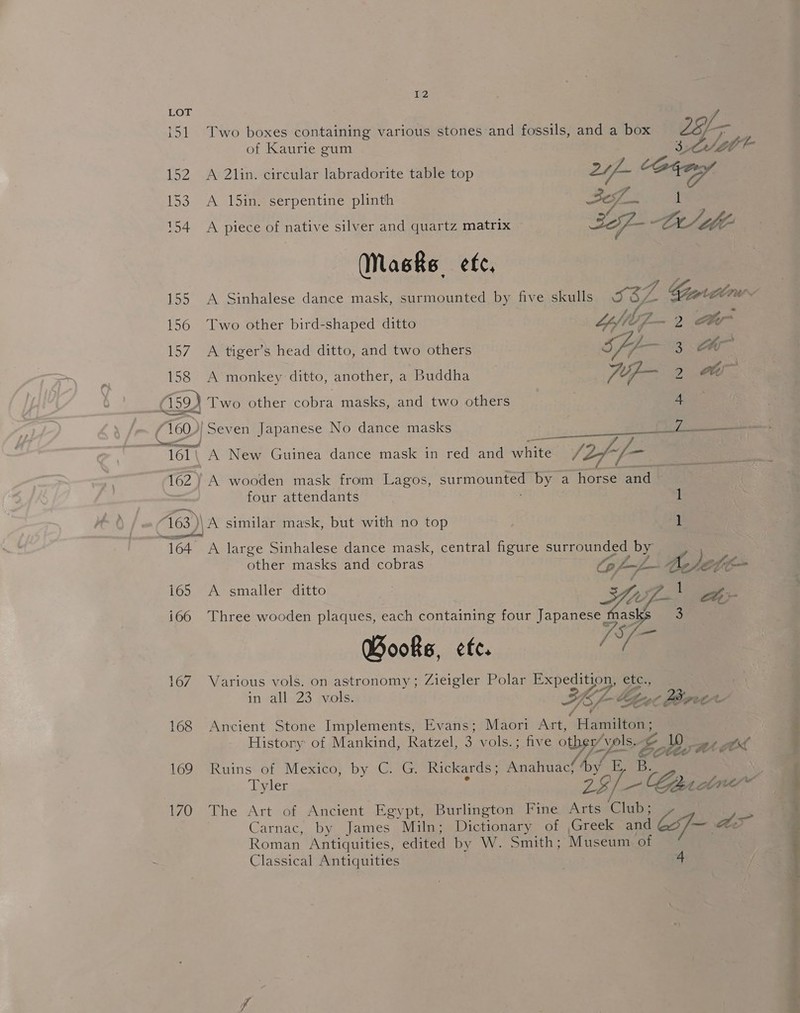 12
LOT
151 Two boxes containing various stones and fossils, and a box 28/-
of Kaurie gum 3
152 A 21in. circular labradorite table top 21/-
153 A 15in. serpentine plinth 1
154 A piece of native silver and quartz matrix
Masks, etc.
155 A Sinhalese dance mask, surmounted by five skulls
156 Two other bird-shaped ditto 2
157 A tiger's head ditto, and two others 3
158 A monkey ditto, another, a Buddha 2
159 Two other cobra masks, and two others 4
160 Seven Japanese No dance masks 7
161 A New Guinea dance mask in red and white
162 A wooden mask from Lagos, surmounted by a horse and
four attendants 1
163 A similar mask, but with no top 1
164 A large Sinhalese dance mask, central figure surrounded by
other masks and cobras
165 A smaller ditto 1
166 Three wooden plaques, each containing four Japanese masks 3
15/-
Books, etc.
167 Various vols. on astronomy; Zieigler Polar Expedition, etc.,
in all 23 vols. 23
168 Ancient Stone Implements, Evans; Maori Art, Hamilton;
History of Mankind, Ratzel, 3 vols.; five other vols. 10
169 Ruins of Mexico, by C. G. Rickards; Anahuac, by E. B.
Tyler 28/-
170 The Art of Ancient Egypt, Burlington Fine Arts Club;
Carnac, by James Miln; Dictionary of Greek and
Roman Antiquities, edited by W. Smith; Museum of
Classical Antiquities 4